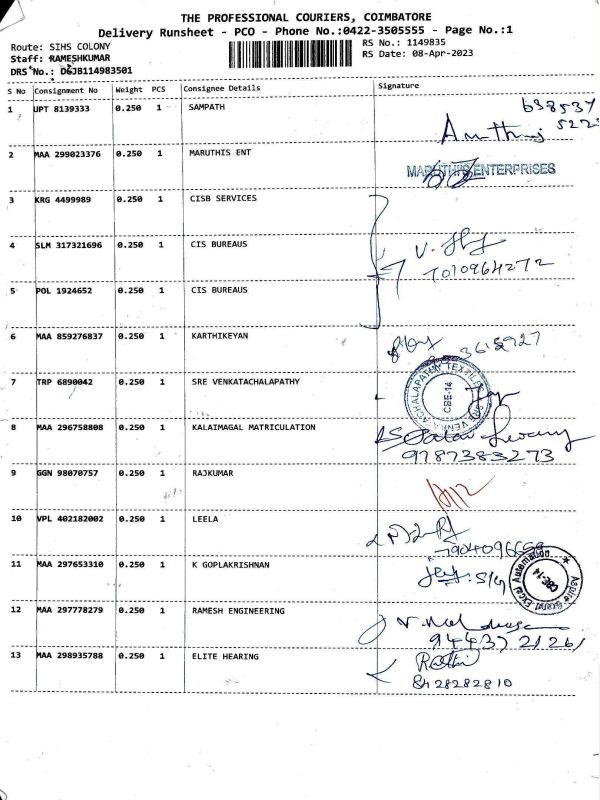 THE PROFESSIONAL COURIERS, COIMBATORE
Delivery Runsheet - PCO - Phone No.:0422-3505555 - Page No.:1
Route: SIHS COLONY
RS No.: 1149835
Staff: RAMESHKUMAR
RS Date: 08-Apr-2023
DRS No.: D6JB114983501
S No Consignment No Weight PCS Consignee Details Signature
1 UPT 8139333 0.250 1 SAMPATH
2 MAA 299023376 0.250 1 MARUTHIS ENT
MARUTHIS ENTERPRISES
3 KRG 4499989 0.250 1 CISB SERVICES
4 SLM 317321696 0.250 1 CIS BUREAUS
7010964272
5 POL 1924652 0.250 1 CIS BUREAUS
6 MAA 859276837 0.250 1 KARTHIKEYAN
7 TRP 6890042 0.250 1 SRE VENKATACHALAPATHY
CBE-14
8 MAA 296758808 0.250 1 KALAIMAGAL MATRICULATION
9787383273
9 GGN 98070757 0.250 1 RAJKUMAR
10 VPL 402182002 0.250 1 LEELA
11 MAA 297653310 0.250 1 K GOPLAKRISHNAN
CBE-14
12 MAA 297778279 0.250 1 RAMESH ENGINEERING
9443721261
13 MAA 298935788 0.250 1 ELITE HEARING
8428282810